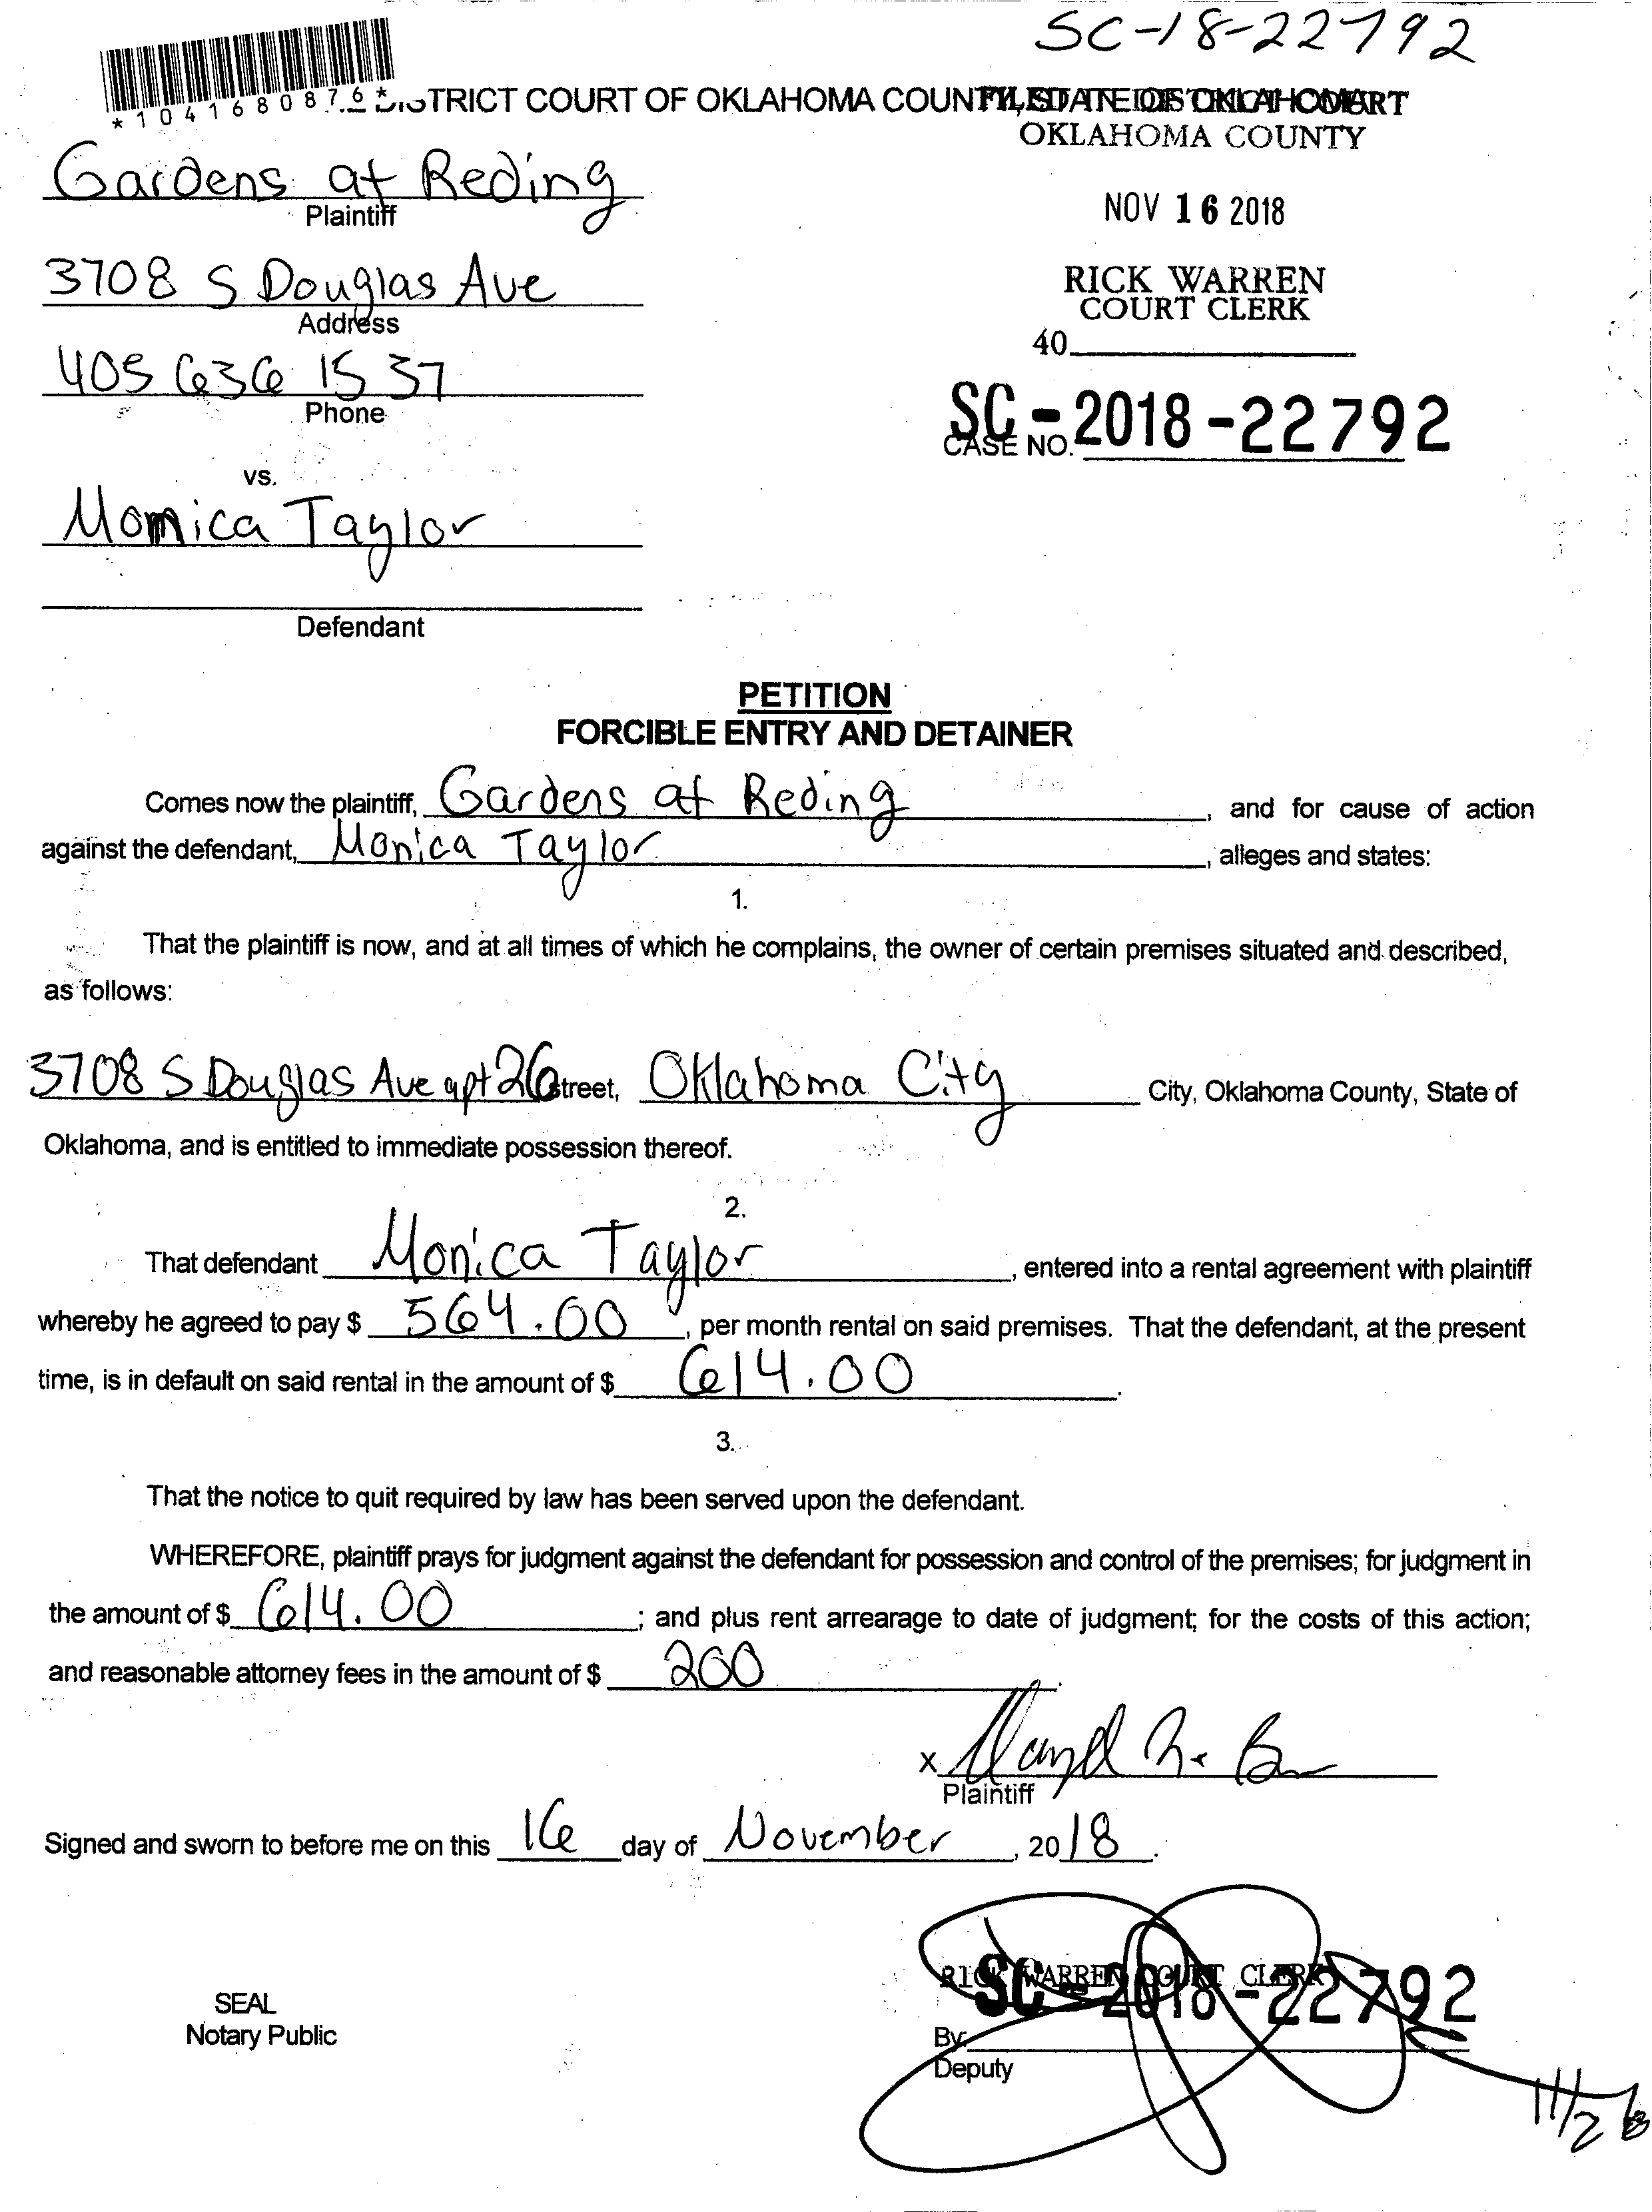 SC-18-22792
*1041680876*
DISTRICT COURT OF OKLAHOMA COUNTY, STATE OF OKLAHOMA
FILED IN DISTRICT COURT
OKLAHOMA COUNTY
Gardens at Reding
Plaintiff
NOV 16 2018
3708 S Douglas Ave
Address
RICK WARREN
COURT CLERK
40
405 636 1537
Phone
SC-2018-22792
CASE NO.
vs.
Momica Taylor
Defendant
PETITION
FORCIBLE ENTRY AND DETAINER
Comes now the plaintiff, Gardens at Reding, and for cause of action
against the defendant, Monica Taylor, alleges and states:
1.
That the plaintiff is now, and at all times of which he complains, the owner of certain premises situated and described,
as follows:
3708 S Douglas Ave apt 26 Street, Oklahoma City City, Oklahoma County, State of
Oklahoma, and is entitled to immediate possession thereof.
2.
That defendant Monica Taylor, entered into a rental agreement with plaintiff
whereby he agreed to pay $ 564.00, per month rental on said premises. That the defendant, at the present
time, is in default on said rental in the amount of $ 614.00.
3.
That the notice to quit required by law has been served upon the defendant.
WHEREFORE, plaintiff prays for judgment against the defendant for possession and control of the premises; for judgment in
the amount of $ 614.00; and plus rent arrearage to date of judgment; for the costs of this action;
and reasonable attorney fees in the amount of $ 200.
X
Plaintiff
Signed and sworn to before me on this 16 day of November, 2018.
RICK WARREN COURT CLERK
SC-2018-22792
SEAL
Notary Public
By:
Deputy